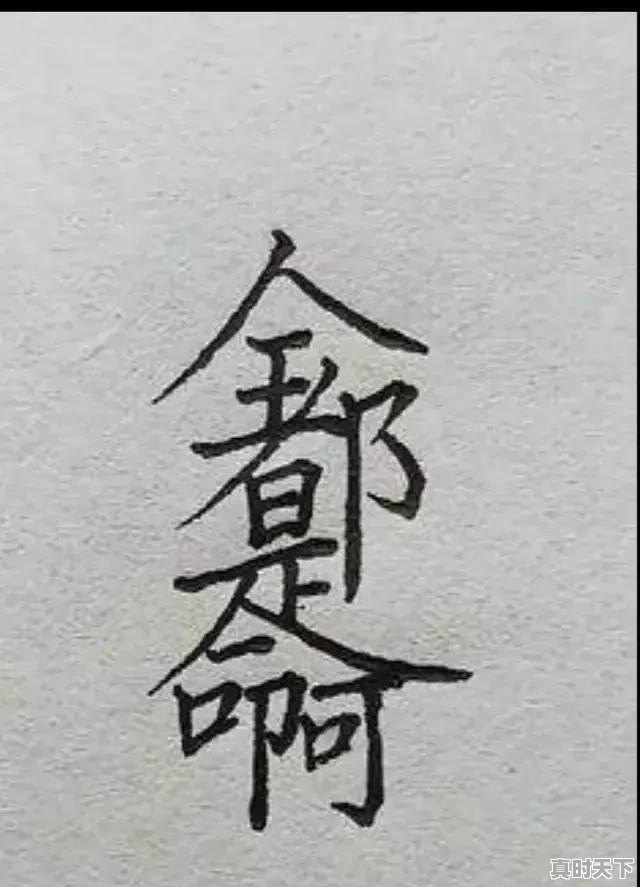 全都是命啊
真时天下